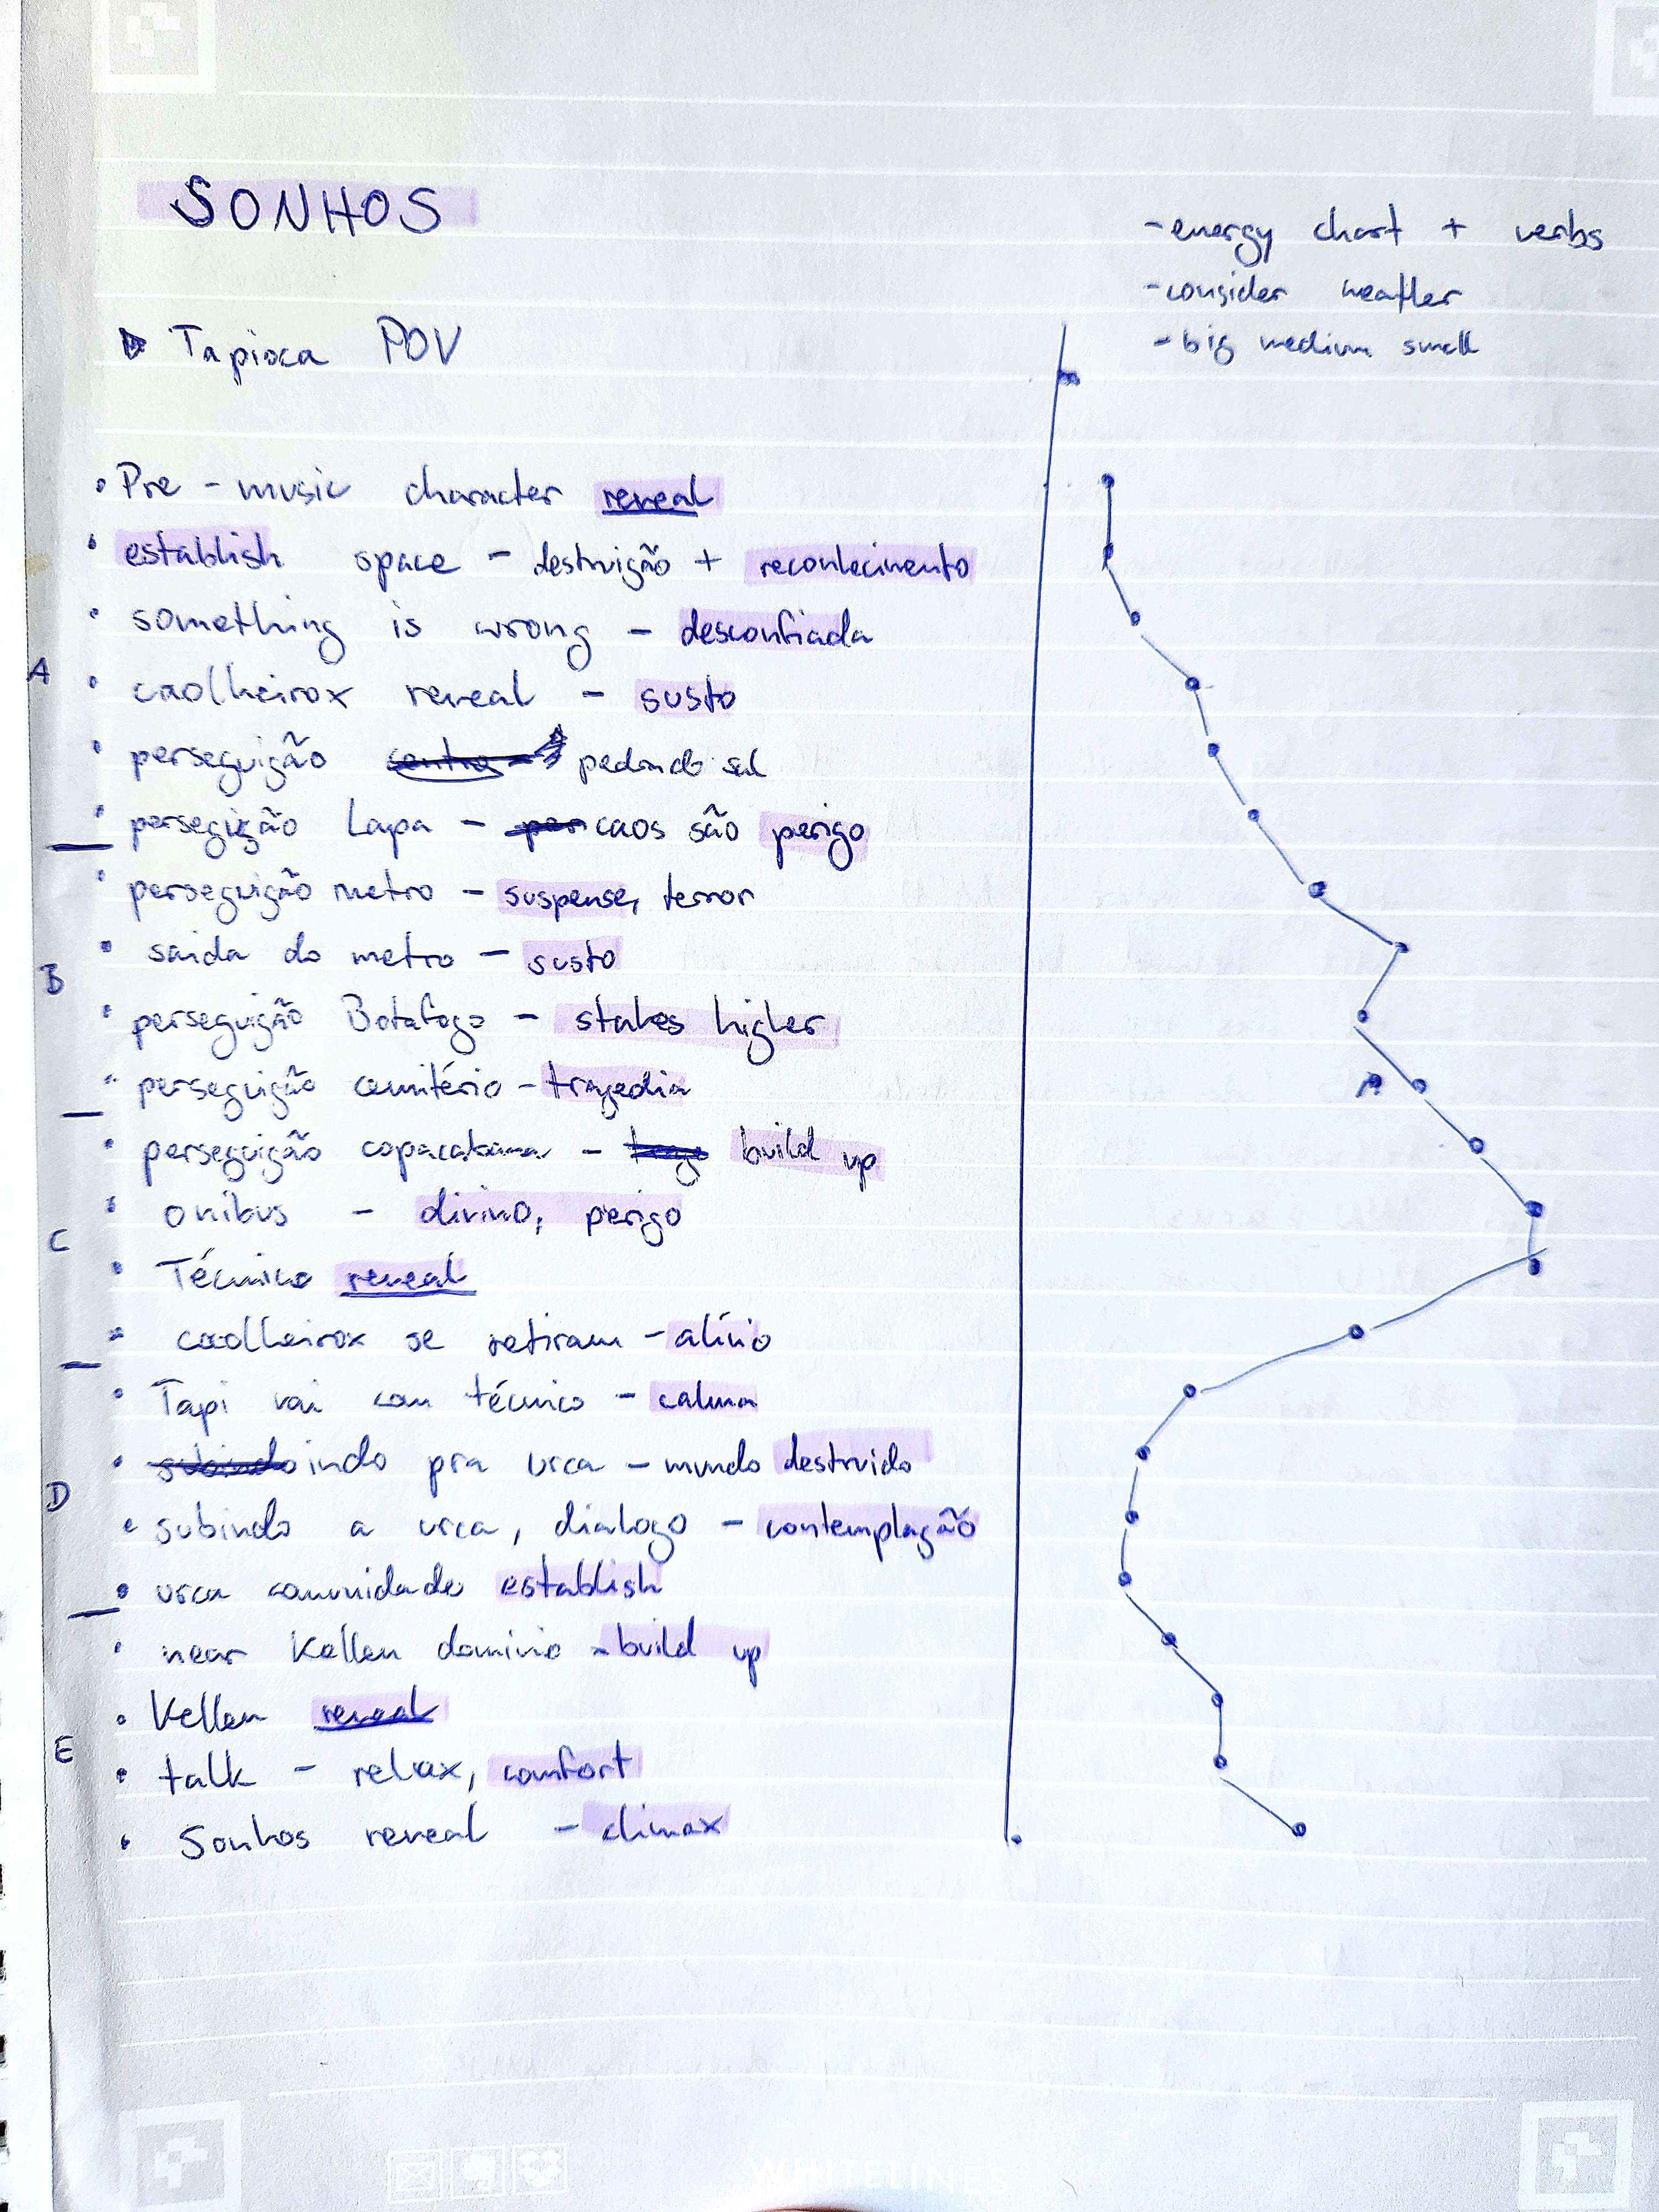 SONHOS
-energy chart + verbs
-consider weather
-big medium small
Tapioca POV
• Pre-music character reveal
• establish space - destruição + reconhecimento
• something is wrong - desconfiada
A
• caolheirox reveal - susto
• perseguição pedindo sal
• perseguição Lapa - caos são perigo
• perseguição metro - suspense, terror
• saida do metro - susto
B
• perseguição Botafogo - stakes higher
• perseguição cemitério - tragedia
• perseguição copacabana - build up
• onibus - divino, perigo
C
• Técnico reveal
• caolheirox se retiram - alívio
• Tapi vai com técnico - calma
• indo pra urca - mundo destruido
D
• subindo a urca, dialogo - contemplação
• urca comunidade establish
• near Kellen dominio - build up
• Kellen reveal
E
• talk - relax, comfort
• Sonhos reveal - climax
WHITELINES